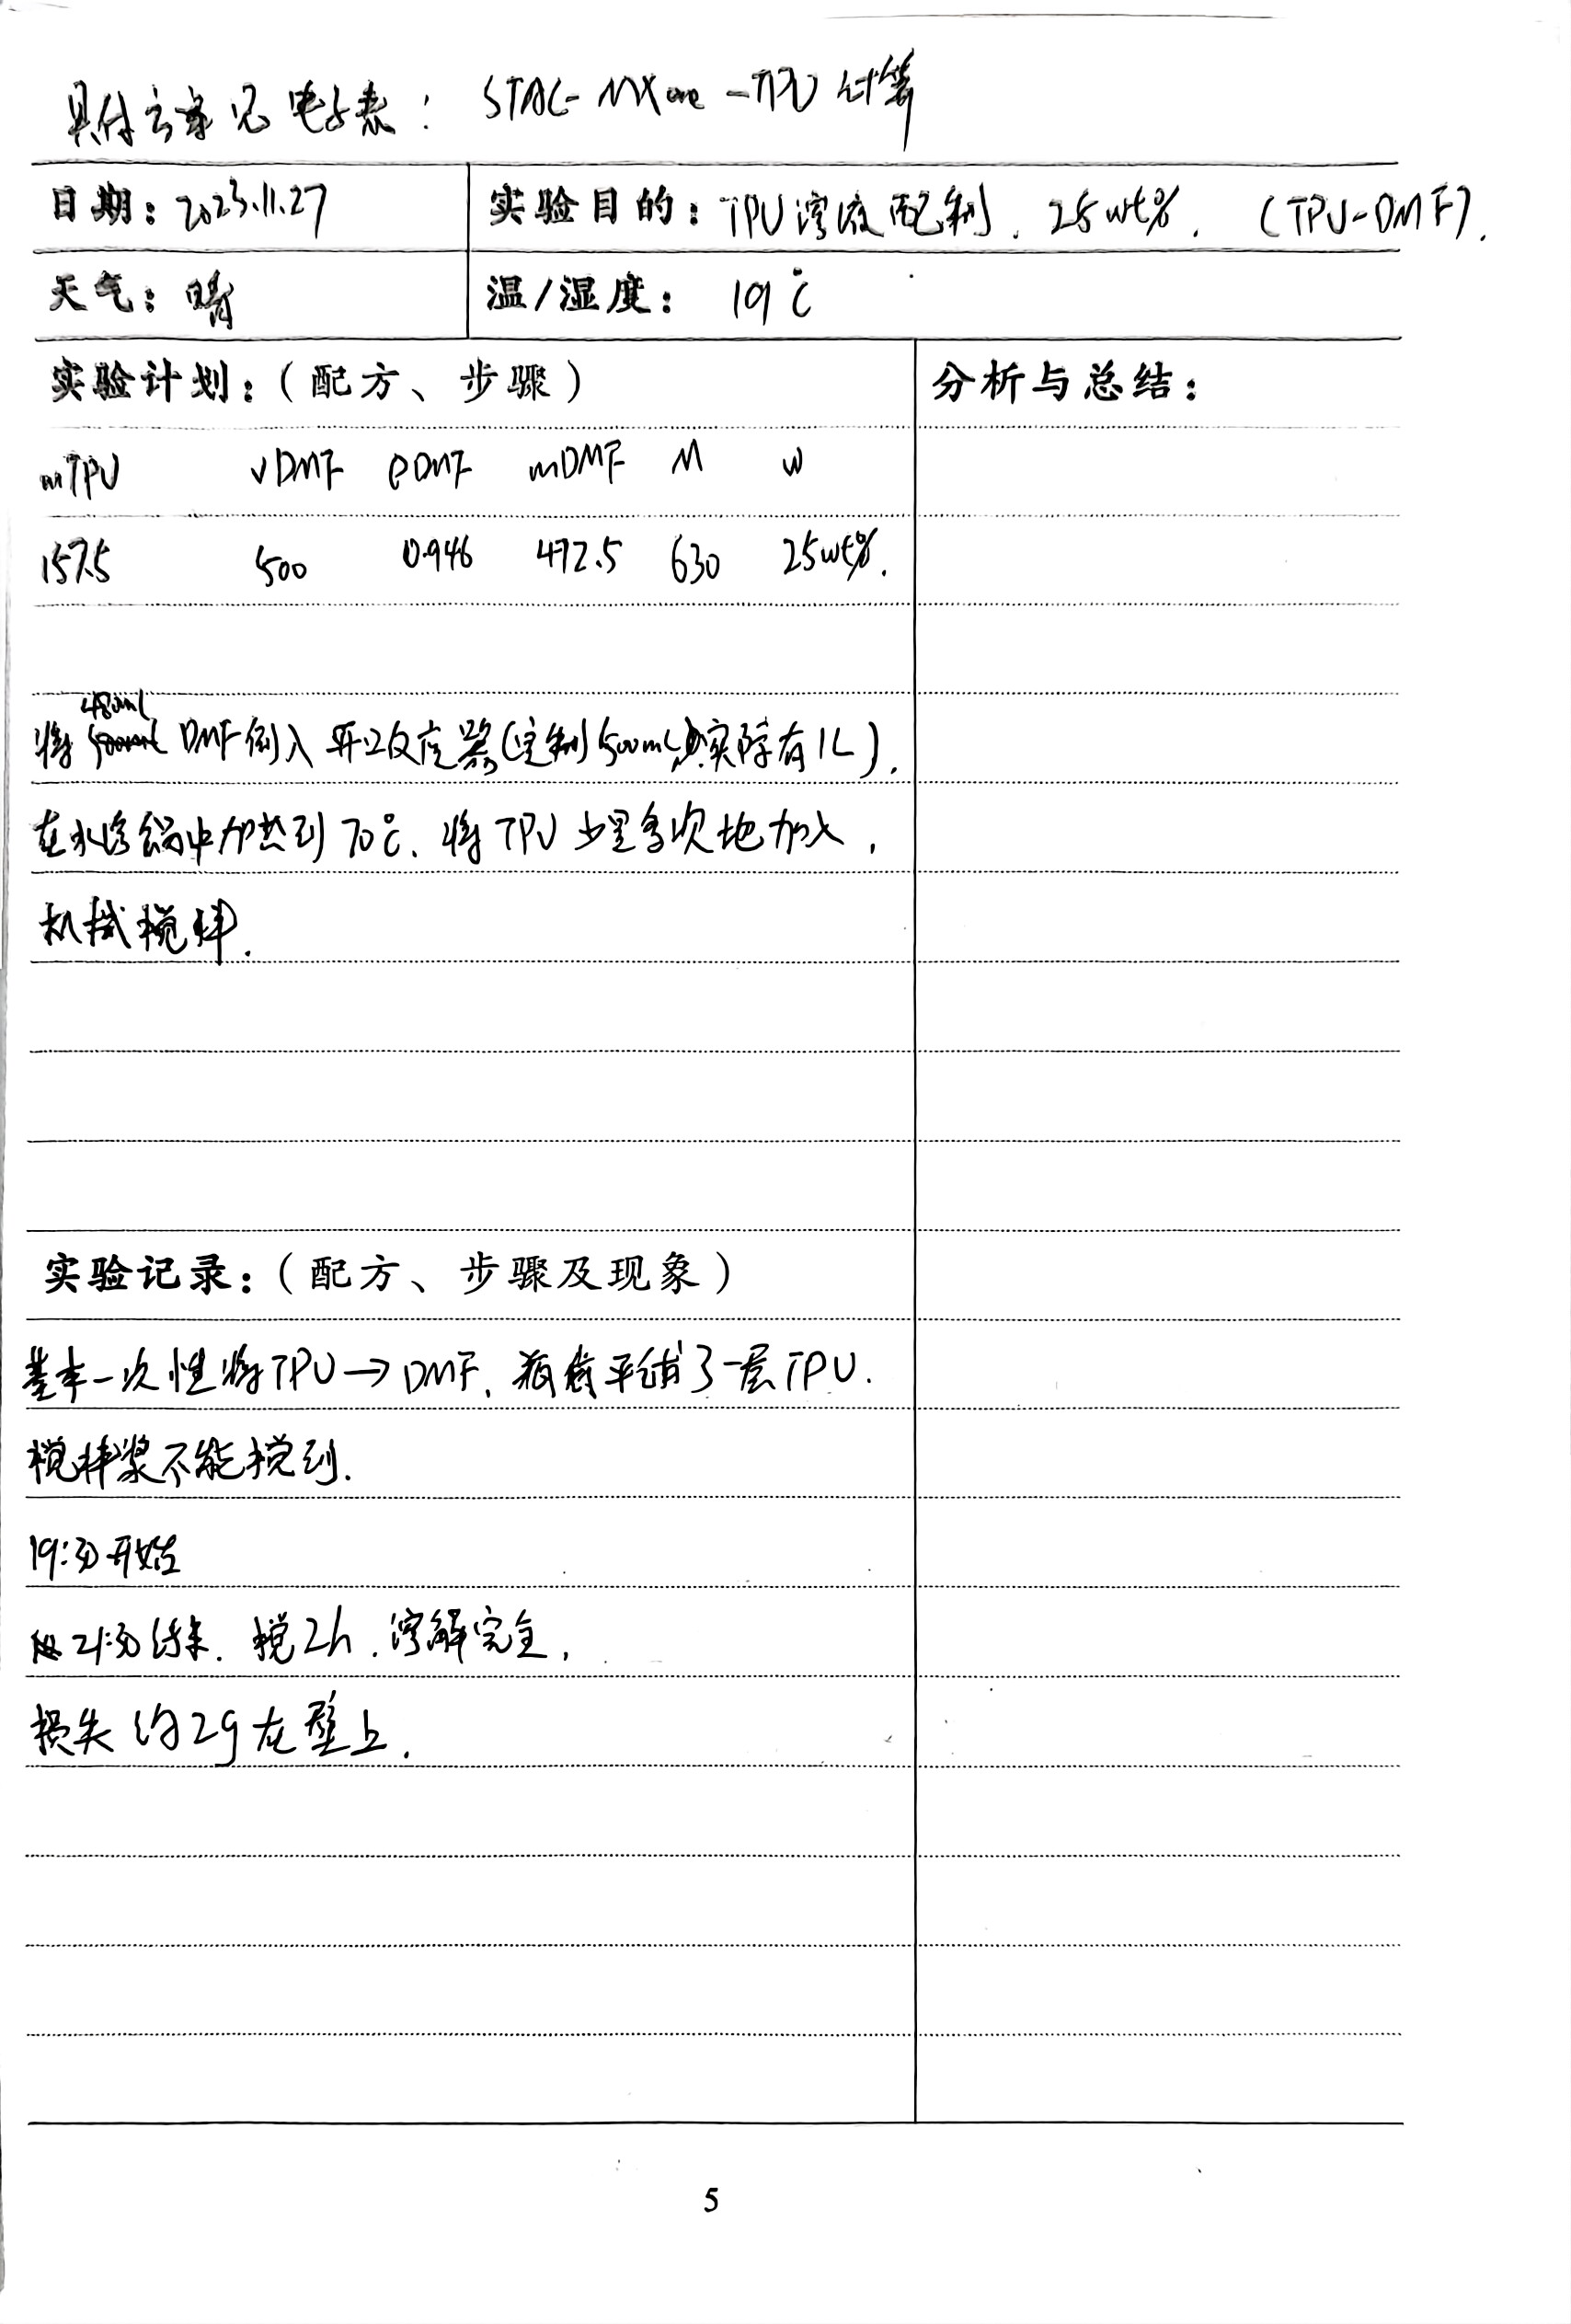 具体方案见电子表: STAC-MXene-TPU 计算
日期:2023.11.27 实验目的:TPU溶液配制. 25wt%. (TPU-DMF).
天气:晴 温/湿度: 19℃
实验计划:(配方、步骤) 分析与总结:
mTPU vDMF ρDMF mDMF M w
157.5 500 0.946 472.5 630 25wt%.
480ml
将 DMF倒入开口反应器(定制500mL,实际有1L).
在水浴锅中加热到70℃. 将TPU少量多次地加入,
机械搅拌.
实验记录:(配方、步骤及现象)
基本一次性将TPU→DMF. 瓶底平铺了一层TPU.
搅拌桨不能搅到.
19:30开始
21:30结束. 搅2h. 溶解完全,
损失约2g在壁上.
5